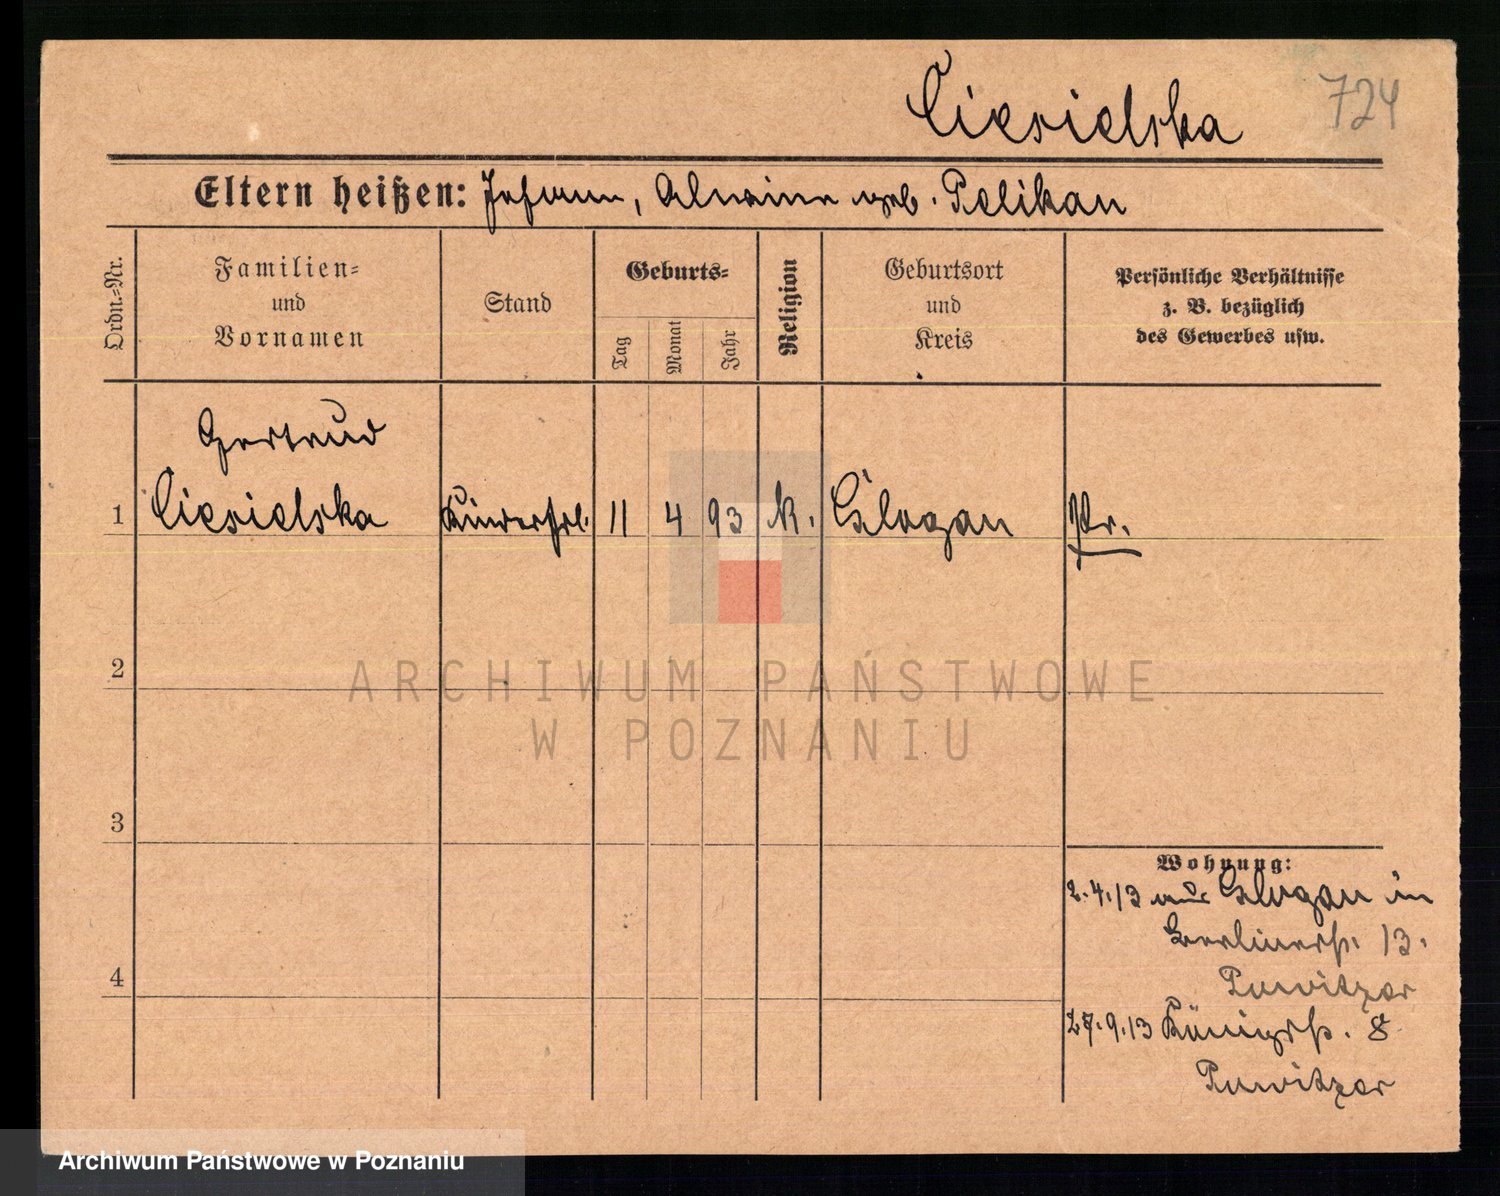 Ciesielska 724
Eltern heißen: Johann, Alwine geb. Pelikan
Ordn.-Nr.
Familien-
und
Vornamen
Stand
Geburts-
Tag
Monat
Jahr
Religion
Geburtsort
und
Kreis
Persönliche Verhältnisse
z. B. bezüglich
des Gewerbes usw.
Gertrud
1 Ciesielska Kinderfrl. 11 4 93 k. Glogau Pr.
2
3
4
Wohnung:
2.4.13 aus Glogau in
Berlinerstr. 13.
Purwitzer
27.9.13 Königstr. 8
Purwitzer
ARCHIWUM PAŃSTWOWE
W POZNANIU
Archiwum Państwowe w Poznaniu